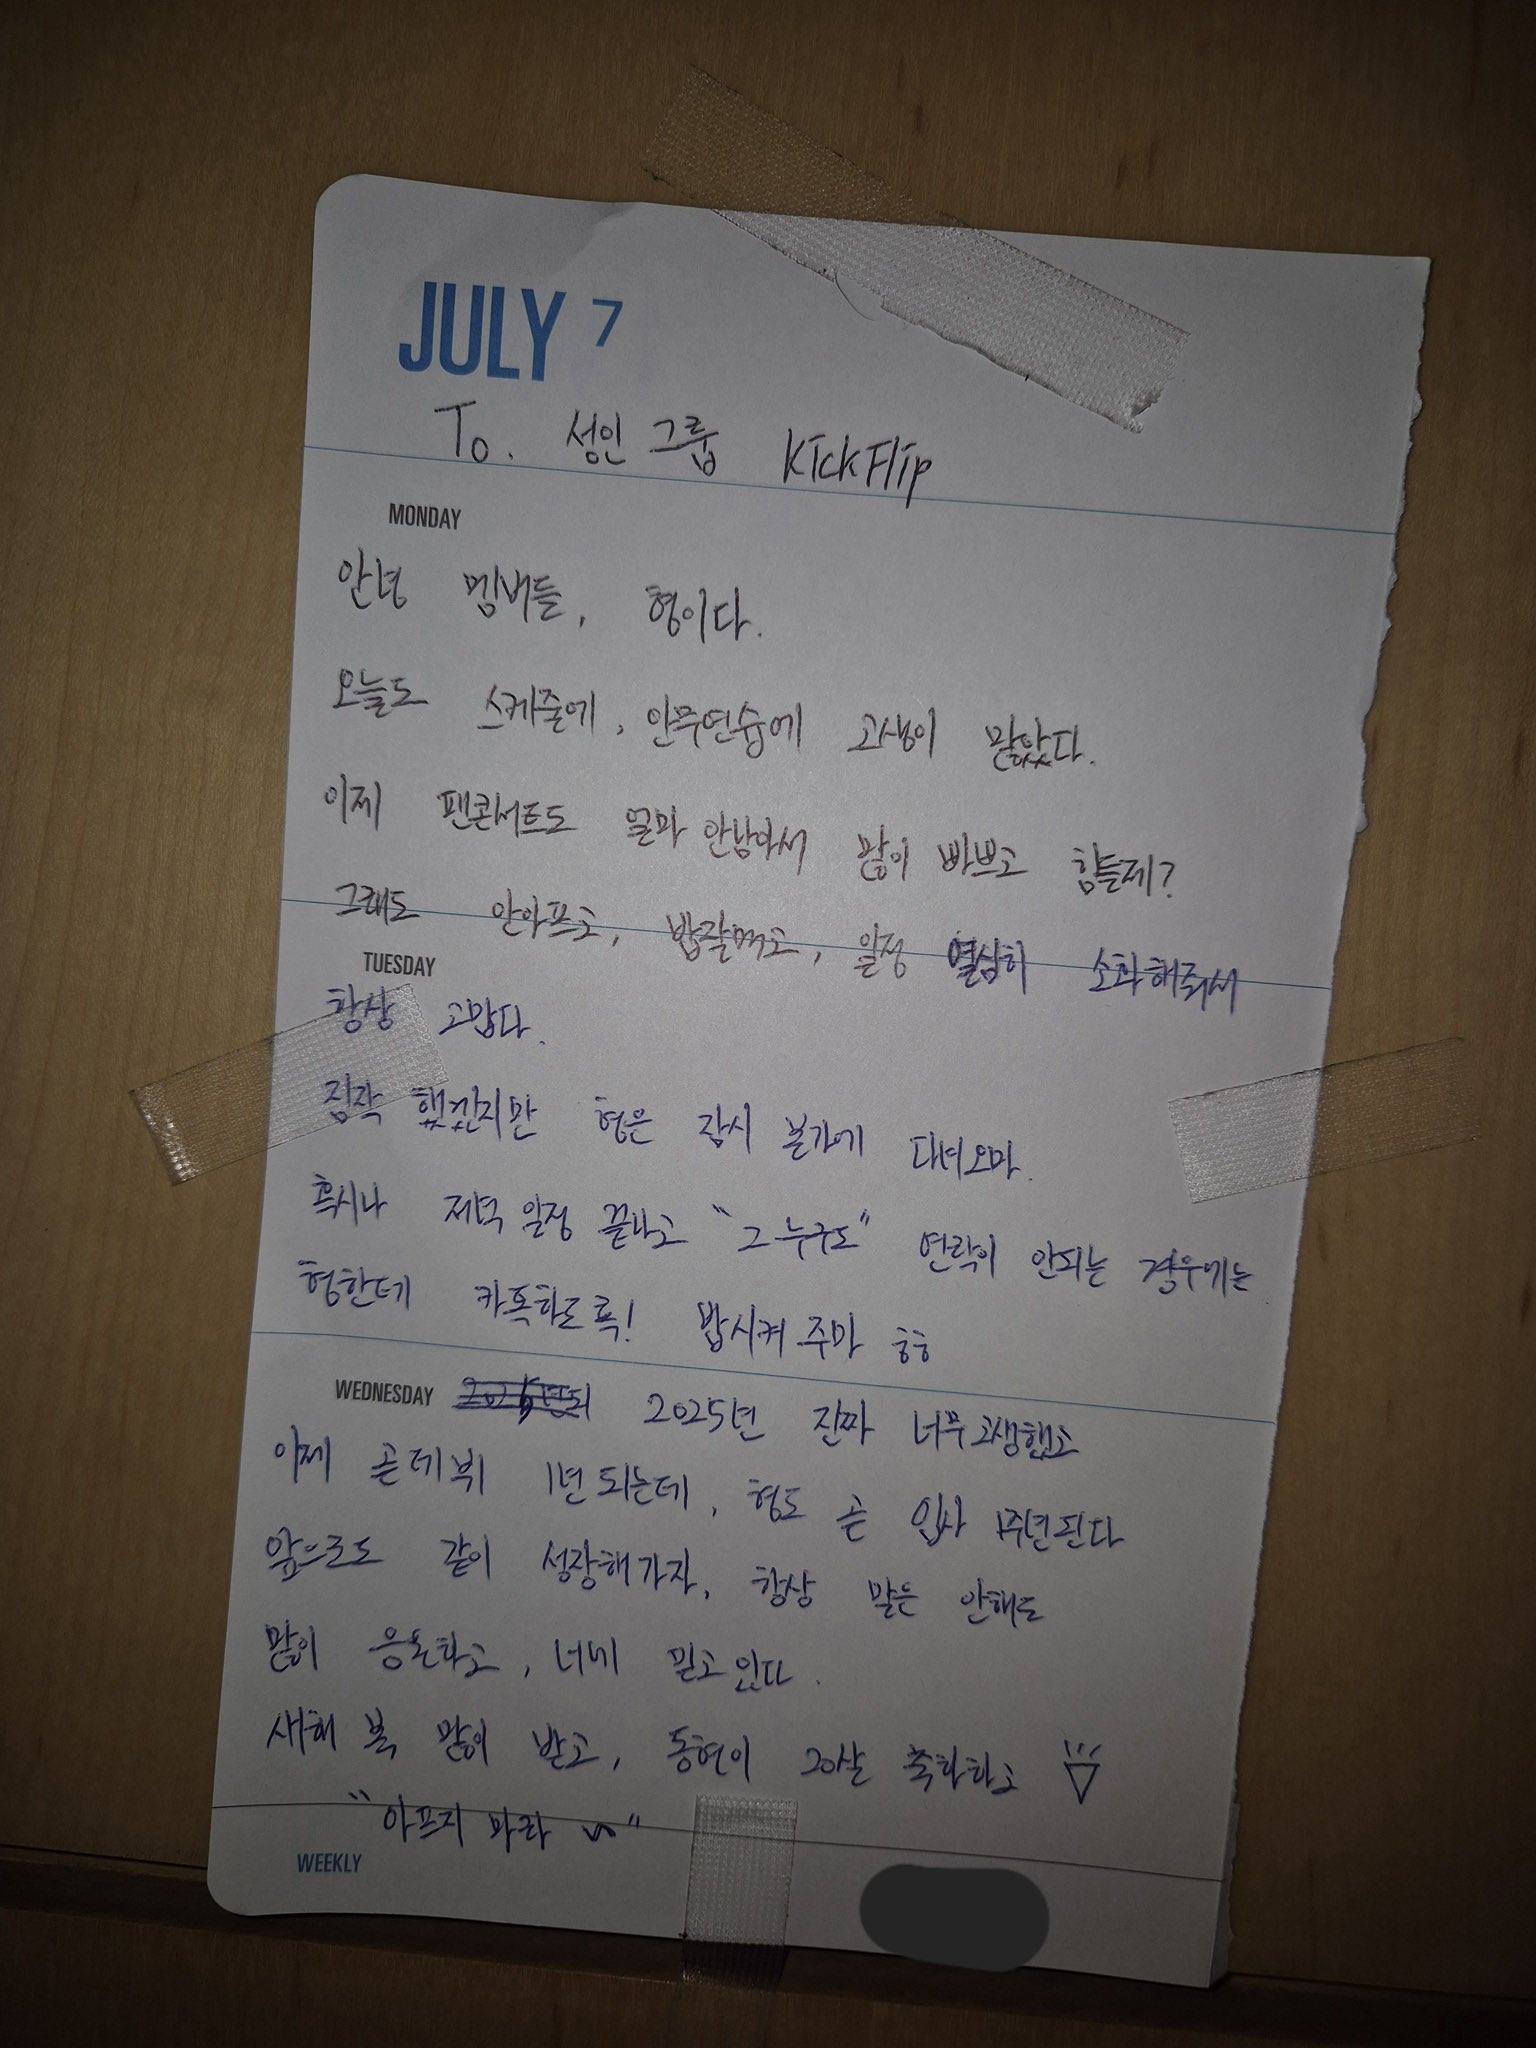 JULY 7
To. 성인 그룹 KickFlip
MONDAY
안녕 멤버들, 형이다.
오늘도 스케줄에, 안무연습에 고생이 많았다.
이제 팬콘서트도 얼마 안남아서 많이 바쁘고 힘들제?
그래도 안아프고, 밥잘먹고, 일정 열심히 소화해줘서
TUESDAY
항상 고맙다.
짐작 했겠지만 형은 잠시 본가에 다녀오마.
혹시나 저녁 일정 끝나고 "그 누구도" 연락이 안되는 경우에는
형한테 카톡하도록! 밥시켜 주마 ㅎㅎ
WEDNESDAY 2025년 진짜 너무 고생했고
이제 곧 데뷔 1년 되는데, 형도 곧 입사 1주년된다
앞으로도 같이 성장해가자, 항상 말은 안해도
많이 응원하고, 너네 믿고 있다.
새해 복 많이 받고, 동현이 20살 축하하고
"아프지 마라 ^^"
WEEKLY